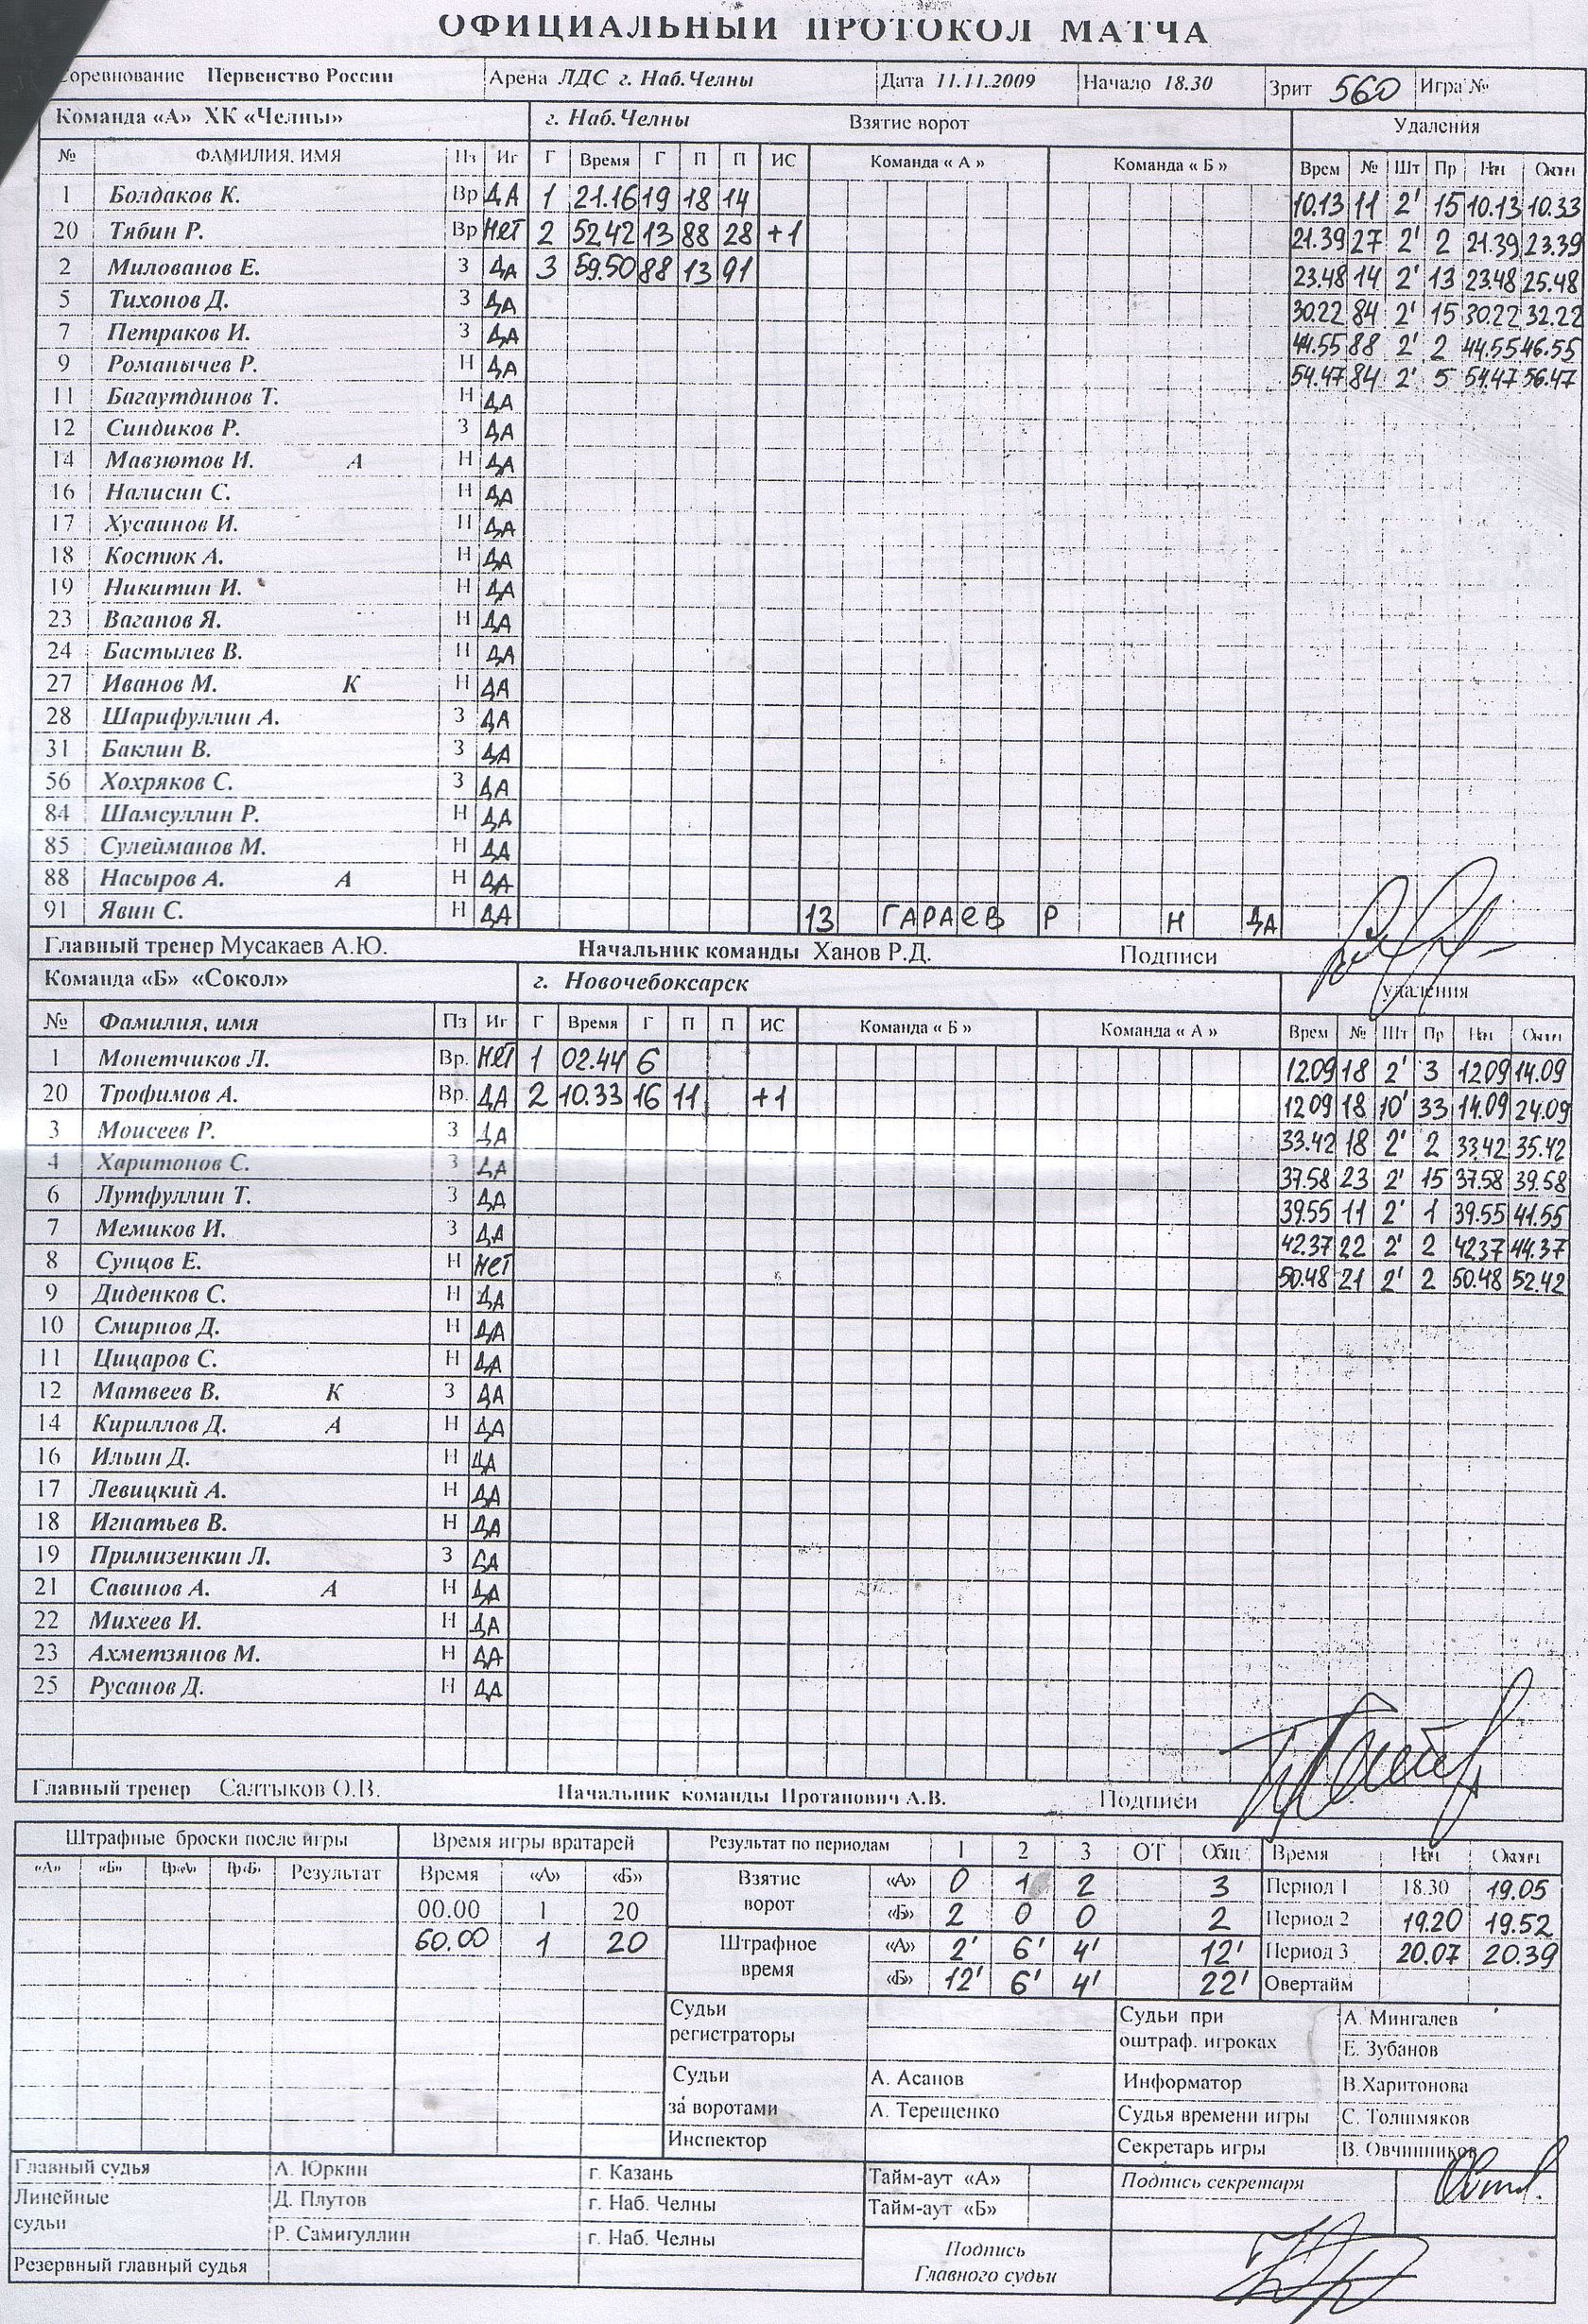 ОФИЦИАЛЬНЫЙ ПРОТОКОЛ МАТЧА
Соревнование Первенство России Арена ЛДС г. Наб.Челны Дата 11.11.2009 Начало 18.30 Зрит 560 Игра №
Команда «А» ХК «Челны» г. Наб.Челны Взятие ворот Удаления
№ ФАМИЛИЯ, ИМЯ Пз Иг Г Время Г П П ИС Команда « А » Команда « Б » Врем № Шт Пр Нач Окон
1 Болдаков К. Вр ДА 1 21.16 19 18 14 10.13 11 2' 15 10.13 10.33
20 Тябин Р. Вр НЕТ 2 52.42 13 88 28 +1 21.39 27 2' 2 21.39 23.39
2 Милованов Е. З ДА 3 59.50 88 13 91 23.48 14 2' 13 23.48 25.48
5 Тихонов Д. З ДА 30.22 84 2' 15 30.22 32.22
7 Петраков И. З ДА 44.55 88 2' 2 44.55 46.55
9 Романычев Р. Н ДА 54.47 84 2' 5 54.47 56.47
11 Багаутдинов Т. Н ДА
12 Синдиков Р. З ДА
14 Мавзютов И. А Н ДА
16 Налисин С. Н ДА
17 Хусаинов И. Н ДА
18 Костюк А. Н ДА
19 Никитин И. Н ДА
23 Ваганов Я. Н ДА
24 Бастылев В. Н ДА
27 Иванов М. К Н ДА
28 Шарифуллин А. З ДА
31 Баклин В. З ДА
56 Хохряков С. З ДА
84 Шамсуллин Р. Н ДА
85 Сулейманов М. Н ДА
88 Насыров А. А Н ДА
91 Явин С. Н ДА 13 ГАРАЕВ Р Н ДА
Главный тренер Мусакаев А.Ю. Начальник команды Ханов Р.Д. Подписи
Команда «Б» «Сокол» г. Новочебоксарск удаления
№ Фамилия, имя Пз Иг Г Время Г П П ИС Команда « Б » Команда « А » Врем № Шт Пр Нач Окон
1 Монетчиков Л. Вр. НЕТ 1 02.44 6 12.09 18 2' 3 12.09 14.09
20 Трофимов А. Вр. ДА 2 10.33 16 11 +1 12.09 18 10' 33 14.09 24.09
3 Моисеев Р. З ДА 33.42 18 2' 2 33.42 35.42
4 Харитонов С. З ДА 37.58 23 2' 15 37.58 39.58
6 Лутфуллин Т. З ДА 39.55 11 2' 1 39.55 41.55
7 Мемиков И. З ДА 42.37 22 2' 2 42.37 44.37
8 Сунцов Е. Н НЕТ 50.48 21 2' 2 50.48 52.42
9 Диденков С. Н ДА
10 Смирнов Д. Н ДА
11 Цицаров С. Н ДА
12 Матвеев В. К З ДА
14 Кириллов Д. А Н ДА
16 Ильин Д. Н ДА
17 Левицкий А. Н ДА
18 Игнатьев В. Н ДА
19 Примизенкин Л. З ДА
21 Савинов А. А Н ДА
22 Михеев И. Н ДА
23 Ахметзянов М. Н ДА
25 Русанов Д. Н ДА
Главный тренер Салтыков О.В. Начальник команды Протанович А.В. Подписи
Штрафные броски после игры Время игры вратарей Результат по периодам 1 2 3 ОТ Общ Время Нач Окон
«А» «Б» Вр«А» Вр«Б» Результат Время «А» «Б» Взятие ворот «А» 0 1 2 3 Период 1 18.30 19.05
00.00 1 20 «Б» 2 0 0 2 Период 2 19.20 19.52
60.00 1 20 Штрафное время «А» 2' 6' 4' 12' Период 3 20.07 20.39
«Б» 12' 6' 4' 22' Овертайм
Судьи регистраторы Судьи при оштраф. игроках А. Мингалев
Е. Зубанов
Судьи за воротами А. Асанов Информатор В.Харитонова
А. Терещенко Судья времени игры С. Толшмяков
Инспектор Секретарь игры В. Овчинников
Главный судья А. Юркин г. Казань Тайм-аут «А» Подпись секретаря
Линейные судьи Д. Плутов г. Наб. Челны Тайм-аут «Б»
Р. Самигуллин г. Наб. Челны Подпись Главного судьи
Резервный главный судья